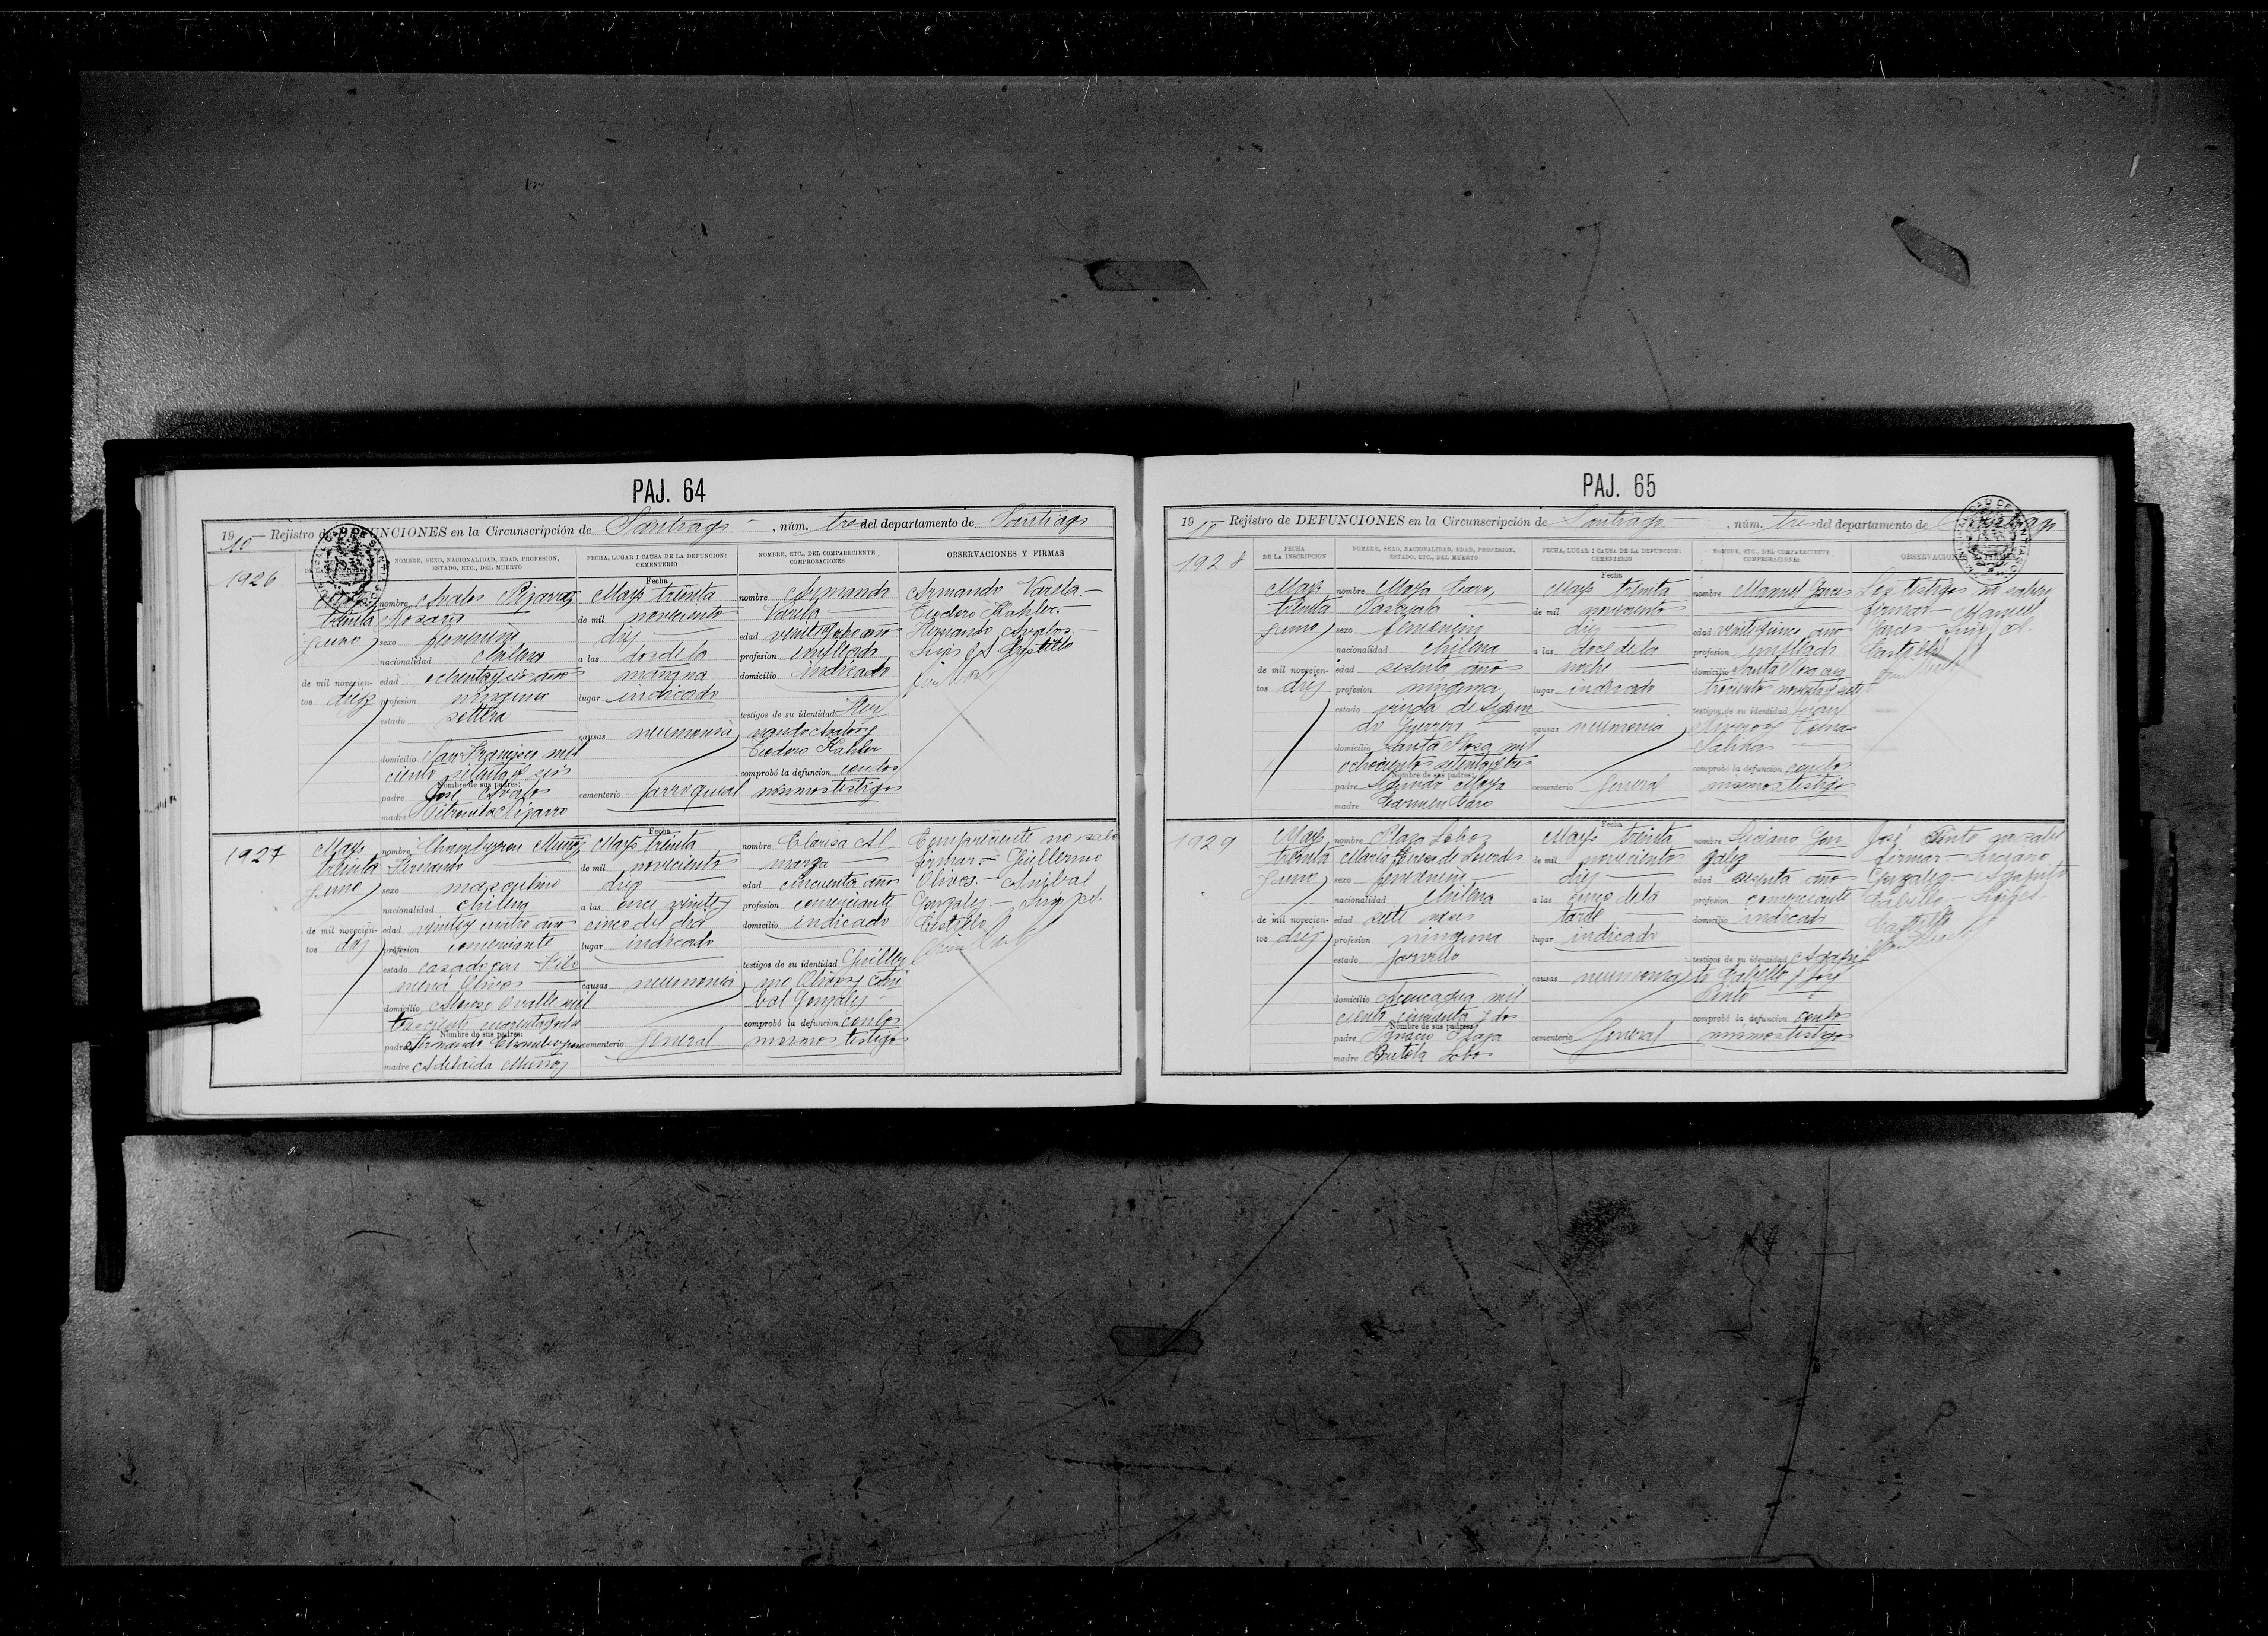 PAJ. 64
1910 — Rejistro de DEFUNCIONES en la Circunscripción de Santiago, núm. tres del departamento de Santiago
NOMBRE, SEXO, NACIONALIDAD, EDAD, PROFESION, ESTADO, ETC., DEL MUERTO
FECHA, LUGAR I CAUSA DE LA DEFUNCION: CEMENTERIO
NOMBRE, ETC., DEL COMPARECIENTE COMPROBACIONES
OBSERVACIONES Y FIRMAS
1926
Mayo
treinta
y uno
de mil novecien-
tos diez
nombre Avalos Pizarro
Rosario
sexo femenino
nacionalidad chilena
edad ochenta y seis años
profesion ninguna
estado soltera
domicilio San Francisco mil
ciento setenta y seis
Nombre de sus padres:
padre José Avalos
madre Petronila Pizarro
Fecha
Mayo treinta
de mil novecientos
diez
a las dos de la
mañana
lugar indicado
causas neumonia
cementerio parroquial
nombre Armando
Varela
edad veintiocho años
profesion empleado
domicilio indicado
testigos de su identidad Her
nando Avalos y
Teodoro Kahler
comprobó la defuncion con los
mismos testigos
Armando Varela.—
Teodoro Kahler.—
Hernando Avalos.—
Luis A. Castillo
1927
Mayo
treinta
y uno
de mil novecien-
tos diez
nombre Chambergon Muñoz
Fernando
sexo masculino
nacionalidad chileno
edad veinte y cuatro años
profesion comerciante
estado casado con Filo
mena Olivos
domicilio Alonso Ovalle mil
Nombre de sus padres:
padre Fernando
madre Adelaida Muñoz
Fecha
Mayo treinta
de mil novecientos
diez
a las once veinte y
cinco del dia
lugar indicado
causas neumonia
cementerio General
nombre Clarisa Al
marza
edad cincuenta años
profesion comerciante
domicilio indicado
testigos de su identidad Guiller
mo Olivos y Aní
bal Gonzalez
comprobó la defuncion con los
mismos testigos
Compareciente no sabe
firmar — Guillermo
Olivos.— Aníbal
Gonzalez.— Luis A.
Castillo
PAJ. 65
1910 — Rejistro de DEFUNCIONES en la Circunscripción de Santiago, núm. tres del departamento de Santiago
FECHA DE LA INSCRIPCION
NOMBRE, SEXO, NACIONALIDAD, EDAD, PROFESION, ESTADO, ETC., DEL MUERTO
FECHA, LUGAR I CAUSA DE LA DEFUNCION: CEMENTERIO
NOMBRE, ETC., DEL COMPARECIENTE COMPROBACIONES
1928
Mayo
treinta
y uno
de mil novecien-
tos diez
nombre Moya Caro
Pascuala
sexo femenino
nacionalidad chilena
edad sesenta años
profesion ninguna
estado viuda de Segun
do Guerrero
domicilio Santa Rosa mil
ochocientos setenta y tres
Nombre de sus padres:
padre Moya
madre Carmen Caro
Fecha
Mayo treinta
de mil novecientos
diez
a las doce de la
noche
lugar indicado
causas neumonia
cementerio General
nombre Manuel Garces
edad veinte y cinco años
profesion empleado
domicilio Santa Rosa
trecientos noventa y siete
testigos de su identidad Juan
Salinas
comprobó la defuncion con los
mismos testigos
Los testigos no saben
firmar — Manuel
Garces — Luis A.
Castillo
1929
Mayo
treinta
y uno
de mil novecien-
tos diez
nombre Plaza Lobos
Maria Teresa de Lourdes
sexo femenino
nacionalidad chilena
edad siete meses
profesion ninguna
estado párvulo
domicilio Aconcagua mil
ciento cincuenta y dos
Nombre de sus padres:
padre Ignacio Plaza
madre Lobos
Fecha
Mayo treinta
de mil novecientos
diez
a las cinco de la
tarde
lugar indicado
causas neumonia
cementerio General
nombre Luciano Gon
zalez
edad sesenta años
profesion comerciante
domicilio indicado
testigos de su identidad Agapi
to Cabello y José
Pinto
comprobó la defuncion con los
mismos testigos
José Pinto no sabe
firmar — Luciano
Gonzalez — Agapito
Cabello — Luis A.
Castillo